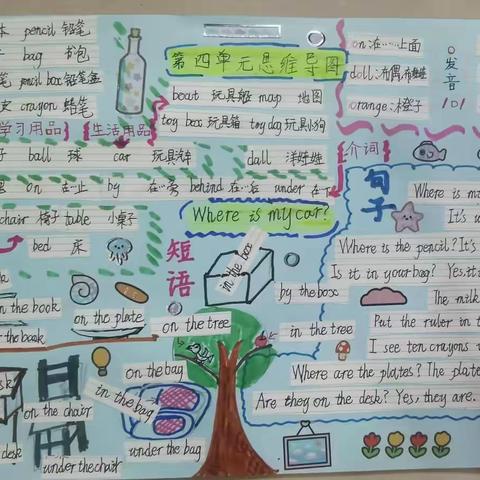 第四单元思维导图
Where is my car?
pencil 铅笔
bag 书包
pencil box 铅笔盒
crayon 蜡笔
学习用品
生活用品
boat 玩具船 map 地图
toy box 玩具箱 toy dog 玩具小狗
ball 球 car 玩具汽车 doll
on 在…上 by 在…旁 behind 在…后 under 在…下
chair 椅子 table 小桌子
bed 床
on:在……上面
doll:
orange:橙子
发音
/ɒ/
介词
句子
Where is my
It's
Where is the pencil? It's
Is it in your bag? Yes, it
The milk
Put the ruler in
I see ten crayons
Where are the plates? The plate
Are they on the desk? Yes, they are.
短语
in the box
by the box
in the book
on the plate
the book
on the tree
in the tree
on the bag
in the bag
under the bag
on the chair
under the chair
desk